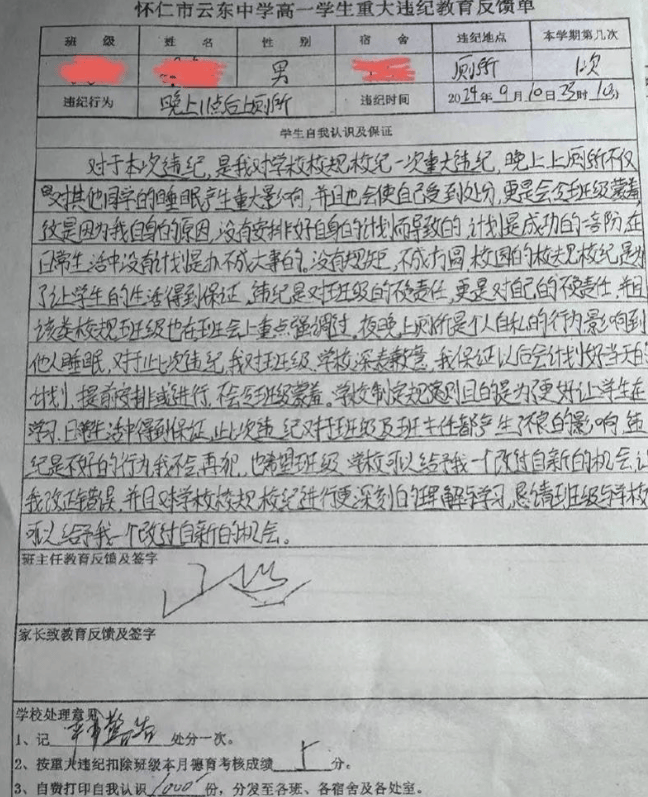 怀仁市云东中学高一学生重大违纪教育反馈单
班 级 姓 名 性 别 宿 舍 违纪地点 本学期第几次
男 厕所 1次
违纪行为 晚上11点后上厕所 违纪时间 2024年9月10日23时10分
学生自我认识及保证
对于本次违纪，是我对学校校规校纪一次重大违纪，晚上上厕所不仅
对其他同学的睡眠产生重大影响，并且也会使自己受到处分，更是会令班级蒙羞
这是因为我自身的原因，没有安排好自身的计划而导致的，计划是成功的一音阶，在
日常生活中没有计划是办不成大事的。没有规矩，不成方圆，校园的校规校纪是为
了让学生的生活得到保证，违纪是对班级的不负责任，更是对自己的不负责任，并且
该类校规班级也在班会上重点强调过，夜晚上厕所是个人自私的行为影响到
他人睡眠，对于此次违纪，我对班级、学校深表歉意，我保证以后会计划好当天的
计划，提前安排或进行，不会令班级蒙羞。学校制定规章则目的是为了更好让学生在
学习、日常生活中得到保证，此次违纪对于班级及班主任都产生了不良的影响，违
纪是不好的行为我不会再犯，也希望班级、学校可以给予我一个改过自新的机会，让
我改正错误，并且对学校校规、校纪进行更深刻的理解与学习，恳请班级与学校
可以给予我一个改过自新的机会。
班主任教育反馈及签字
家长致教育反馈及签字
学校处理意见
1、记 严重警告 处分一次。
2、按重大违纪扣除班级本月德育考核成绩 5 分。
3、自费打印自我认识 1000 份，分发至各班、各宿舍及各处室。